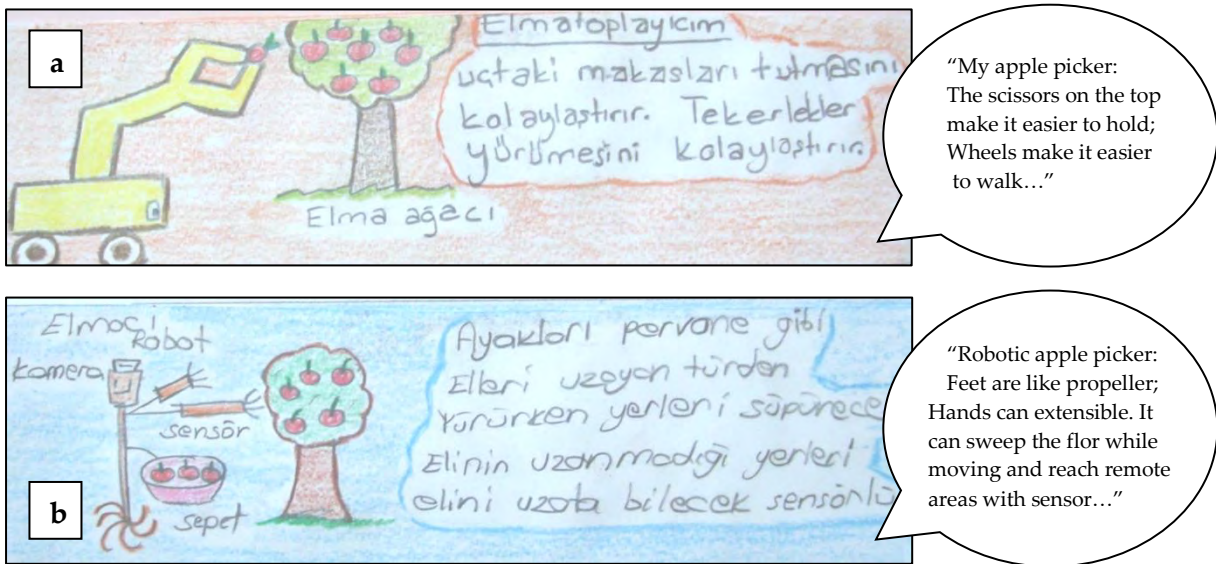 a
Elmatoplayıcım
uçtaki makasları tutmasını
kolaylaştırır. Tekerlekler
yürümesini kolaylaştırır.
Elma ağacı
“My apple picker:
The scissors on the top
make it easier to hold;
Wheels make it easier
to walk…”
b
Elmacı
Robot
kamera
sensör
sepet
Ayakları pervane gibi
Elleri uzayan türden
Yürürken yerleri süpürece
Elinin uzanmadığı yerleri
elini uzata bilecek sensörlü
“Robotic apple picker:
Feet are like propeller;
Hands can extensible. It
can sweep the flor while
moving and reach remote
areas with sensor…”